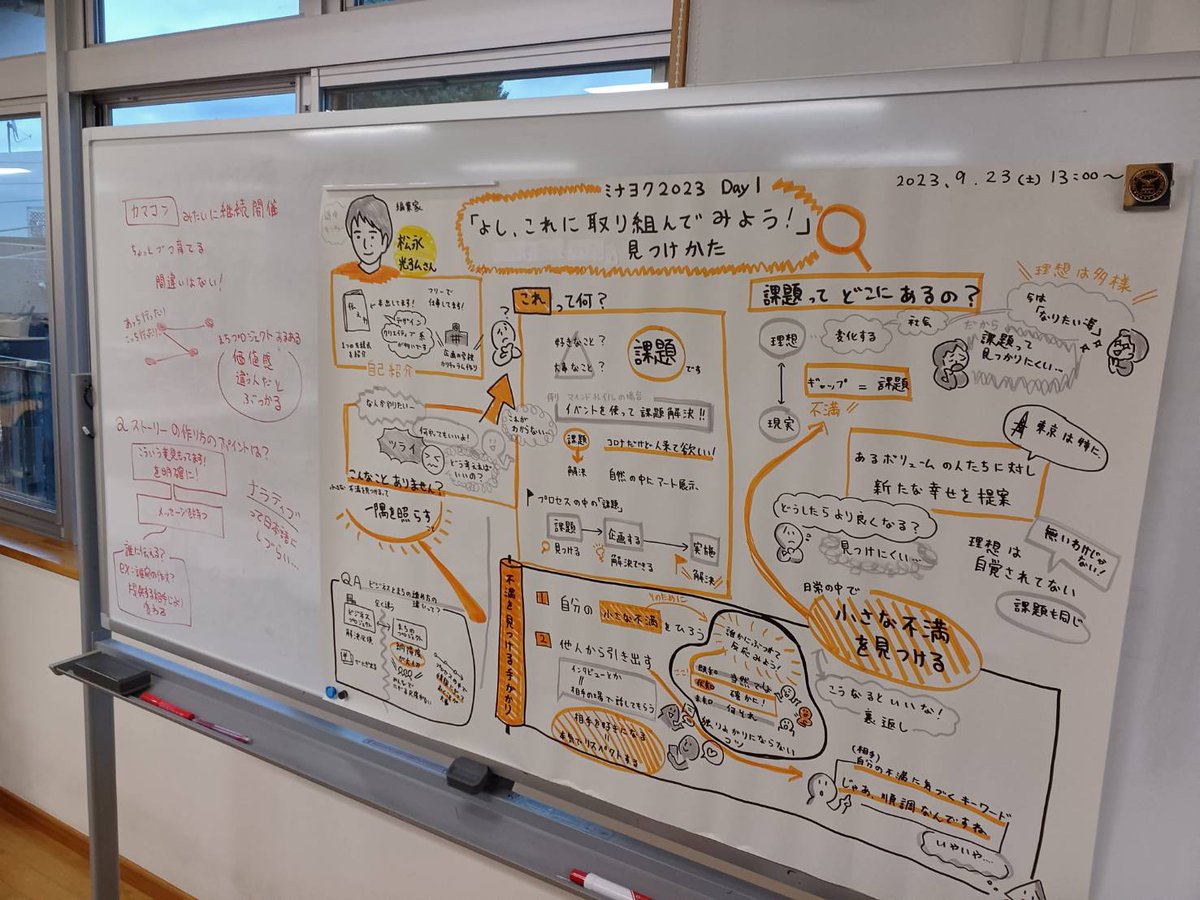 カマコン みたいに継続開催
ちょっとづつ育てる
間違いはない!
あっち行ったり
こっち行ったり
まちプロジェクトあるある
価値感
違う人だと
ぶつかる
Q.ストーリーの作り方のポイントは?
こういう意見もってます!
を明確に!
メッセージを持つ
誰に伝える?
提供する相手によって
変わる
ナラティブ
って日本語に
しづらい…
編集家
松永
光弘さん
ミナヨク2023 Day1
「よし、これに取り組んでみよう!」
見つけかた
2023.9.23(土)13:00~
本出してます!
フリーで
仕事してます!
デザイン
クリエイティブ系
自己紹介
なんかやりたい…
ツライ
何やってもいいよ!
どう考えれば
いいの?
こんなことありません?
小さな不満を見つけて
一隅を照らす
こと
これがわからない…
これって何?
好きなこと?
大事なこと?
課題です
イベントを使って課題解決!!
課題
解決
コロナだけど人来て欲しい!
自然の中にアート展示
プロセスの中の「課題」
課題
見つける
企画する
解決できる
実施
解決
課題ってどこにあるの?
理想は多様
今は
「なりたい姿」
理想
変化する
社会
だから
課題って
見つかりにくい…
ギャップ=課題
現実
不満
東京は特に、
あるボリュームの人たちに対し
新たな幸せを提案
どうしたらより良くなる?
見つけにくい…
理想は
自覚されてない
無いわけじゃ
ない!
課題も同じ
日常の中で
小さな不満
を見つける
こうなるといいな!
裏返し
QA
ビジネスとまちの進め方の
違いって?
全く違う
ビジネス
プロジェクト
まちの
プロジェクト
不満を見つける手がかり
1 自分の小さな不満をひろう
そのために
2 他人から引き出す
インタビューとか
相手の土場で話してもらう
相手を好きになる
本気でリスペクトする
誰かにぶつけて
反応みよう!
当然では
確かに!
何それ
独りよがりにならない
コツ
(相手)
自分の不満に気づくキーワード
じゃあ、順調なんですね
いやいや…